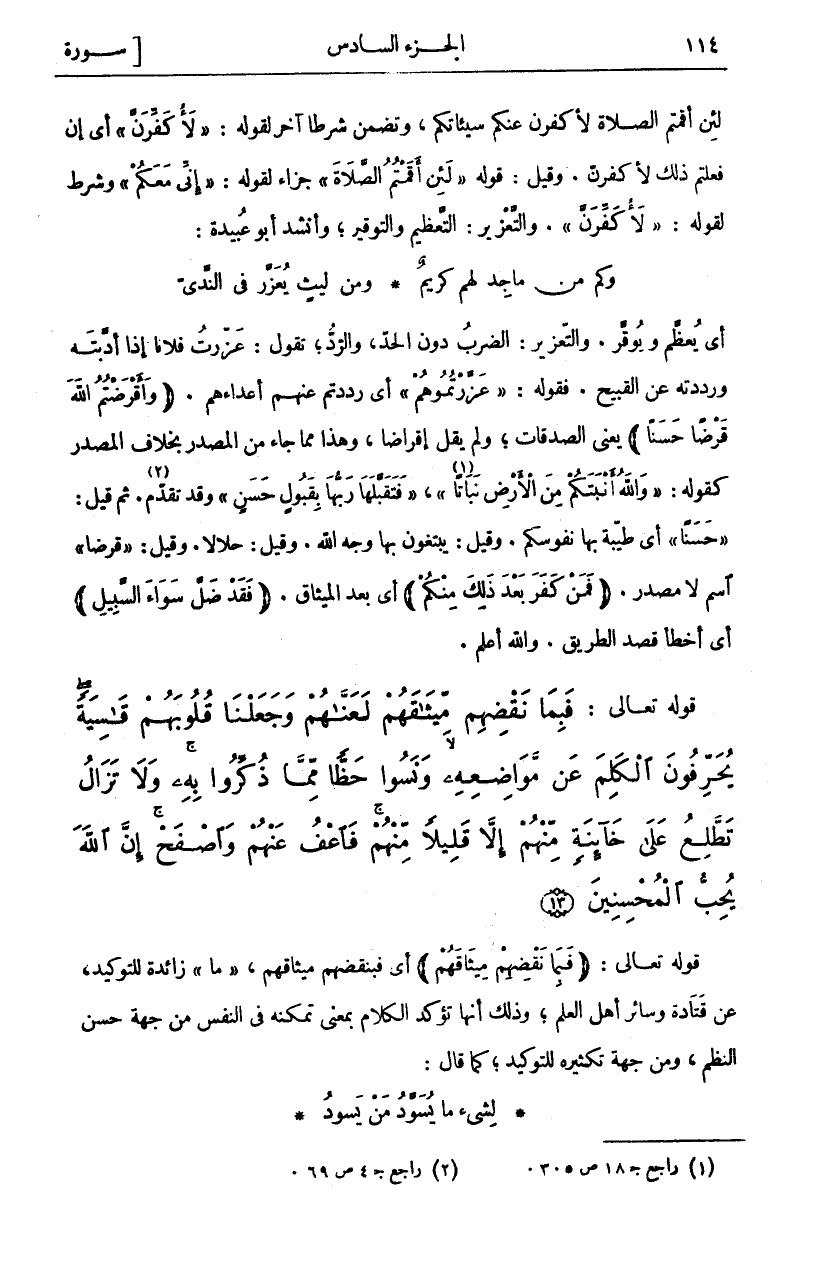 ١١٤ الجزء السادس [ سورة
لئن أقمتم الصلاة لأكفرن عنكم سيئاتكم ، وتضمن شرطا آخر لقوله : « لَأُكَفِّرَنَّ » أى إن
فعلتم ذلك لأكفرنّ . وقيل : قوله « لَئِن أَقَمْتُمُ الصَّلَاةَ » جزاء لقوله : « إِنِّى مَعَكُمْ » وشرط
لقوله : « لَأُكَفِّرَنَّ » . والتَّعْزير : التَّعظيم والتوقير ؛ وأنشد أبو عُبيدة :
وكم من ماجِد لهم كريمٌ * ومن ليثٍ يُعَزَّر فى النَّدىّ
أى يُعظَّم ويُوقَّر . والتّعزير : الضربُ دون الحدّ، والرَّدُّ؛ تقول : عَزّرتُ فلانا إذا أدّبتَه
ورددته عن القبيح . فقوله : « عَزَّرْتُمُوهُمْ » أى رددتم عنهم أعداءهم . ﴿ وَأَقْرَضْتُمُ اللّٰهَ
قَرْضًا حَسَنًا ﴾ يعنى الصدقات ؛ ولم يقل إقراضا ، وهذا مما جاء من المصدر بخلاف المصدر
كقوله : « وَاللّٰهُ أَنْبَتَكُمْ مِنَ الْأَرْضِ نَبَاتًا (١) » ، « فَتَقَبَّلَهَا رَبُّهَا بِقَبُولٍ حَسَنٍ (٢) » وقد تقدّم . ثم قيل :
« حَسَنًا » أى طيّبة بها نفوسكم . وقيل : يبتغون بها وجه الله . وقيل : حلالا. وقيل : «قرضا»
اٌسم لا مصدر . ﴿ فَمَنْ كَفَرَ بَعْدَ ذَلِكَ مِنْكُمْ ﴾ أى بعد الميثاق . ﴿ فَقَدْ ضَلَّ سَوَاءَ السَّبِيلِ ﴾
أى أخطأ قصد الطريق . والله أعلم .
قوله تعالى : فَبِمَا نَقْضِهِم مِّيثَٰقَهُمْ لَعَنَّٰهُمْ وَجَعَلْنَا قُلُوبَهُمْ قَٰسِيَةًۖ
يُحَرِّفُونَ ٱلْكَلِمَ عَن مَّوَاضِعِهِۦۙ وَنَسُوا حَظًّا مِّمَّا ذُكِّرُوا بِهِۦۚ وَلَا تَزَالُ
تَطَّلِعُ عَلَىٰ خَآئِنَةٍ مِّنْهُمْ إِلَّا قَلِيلًا مِّنْهُمْۚ فَٱعْفُ عَنْهُمْ وَٱصْفَحْۚ إِنَّ ٱللَّهَ
يُحِبُّ ٱلْمُحْسِنِينَ ١٣
قوله تعالى : ﴿ فَبِمَا نَقْضِهِمْ مِيثَاقَهُمْ ﴾ أى فبنقضهم ميثاقهم ، « ما » زائدة للتوكيد،
عن قَتَادة وسائر أهل العلم ؛ وذلك أنها تؤكد الكلام بمعنى تمكنه فى النفس من جهة حسن
النظم ، ومن جهة تكثيره للتوكيد ؛ كما قال :
* لِشىء ما يُسَوَّدُ مَنْ يَسودُ *
(١) راجع ج ١٨ ص ٣٠٥ . (٢) راجع ج ٤ ص ٦٩ .